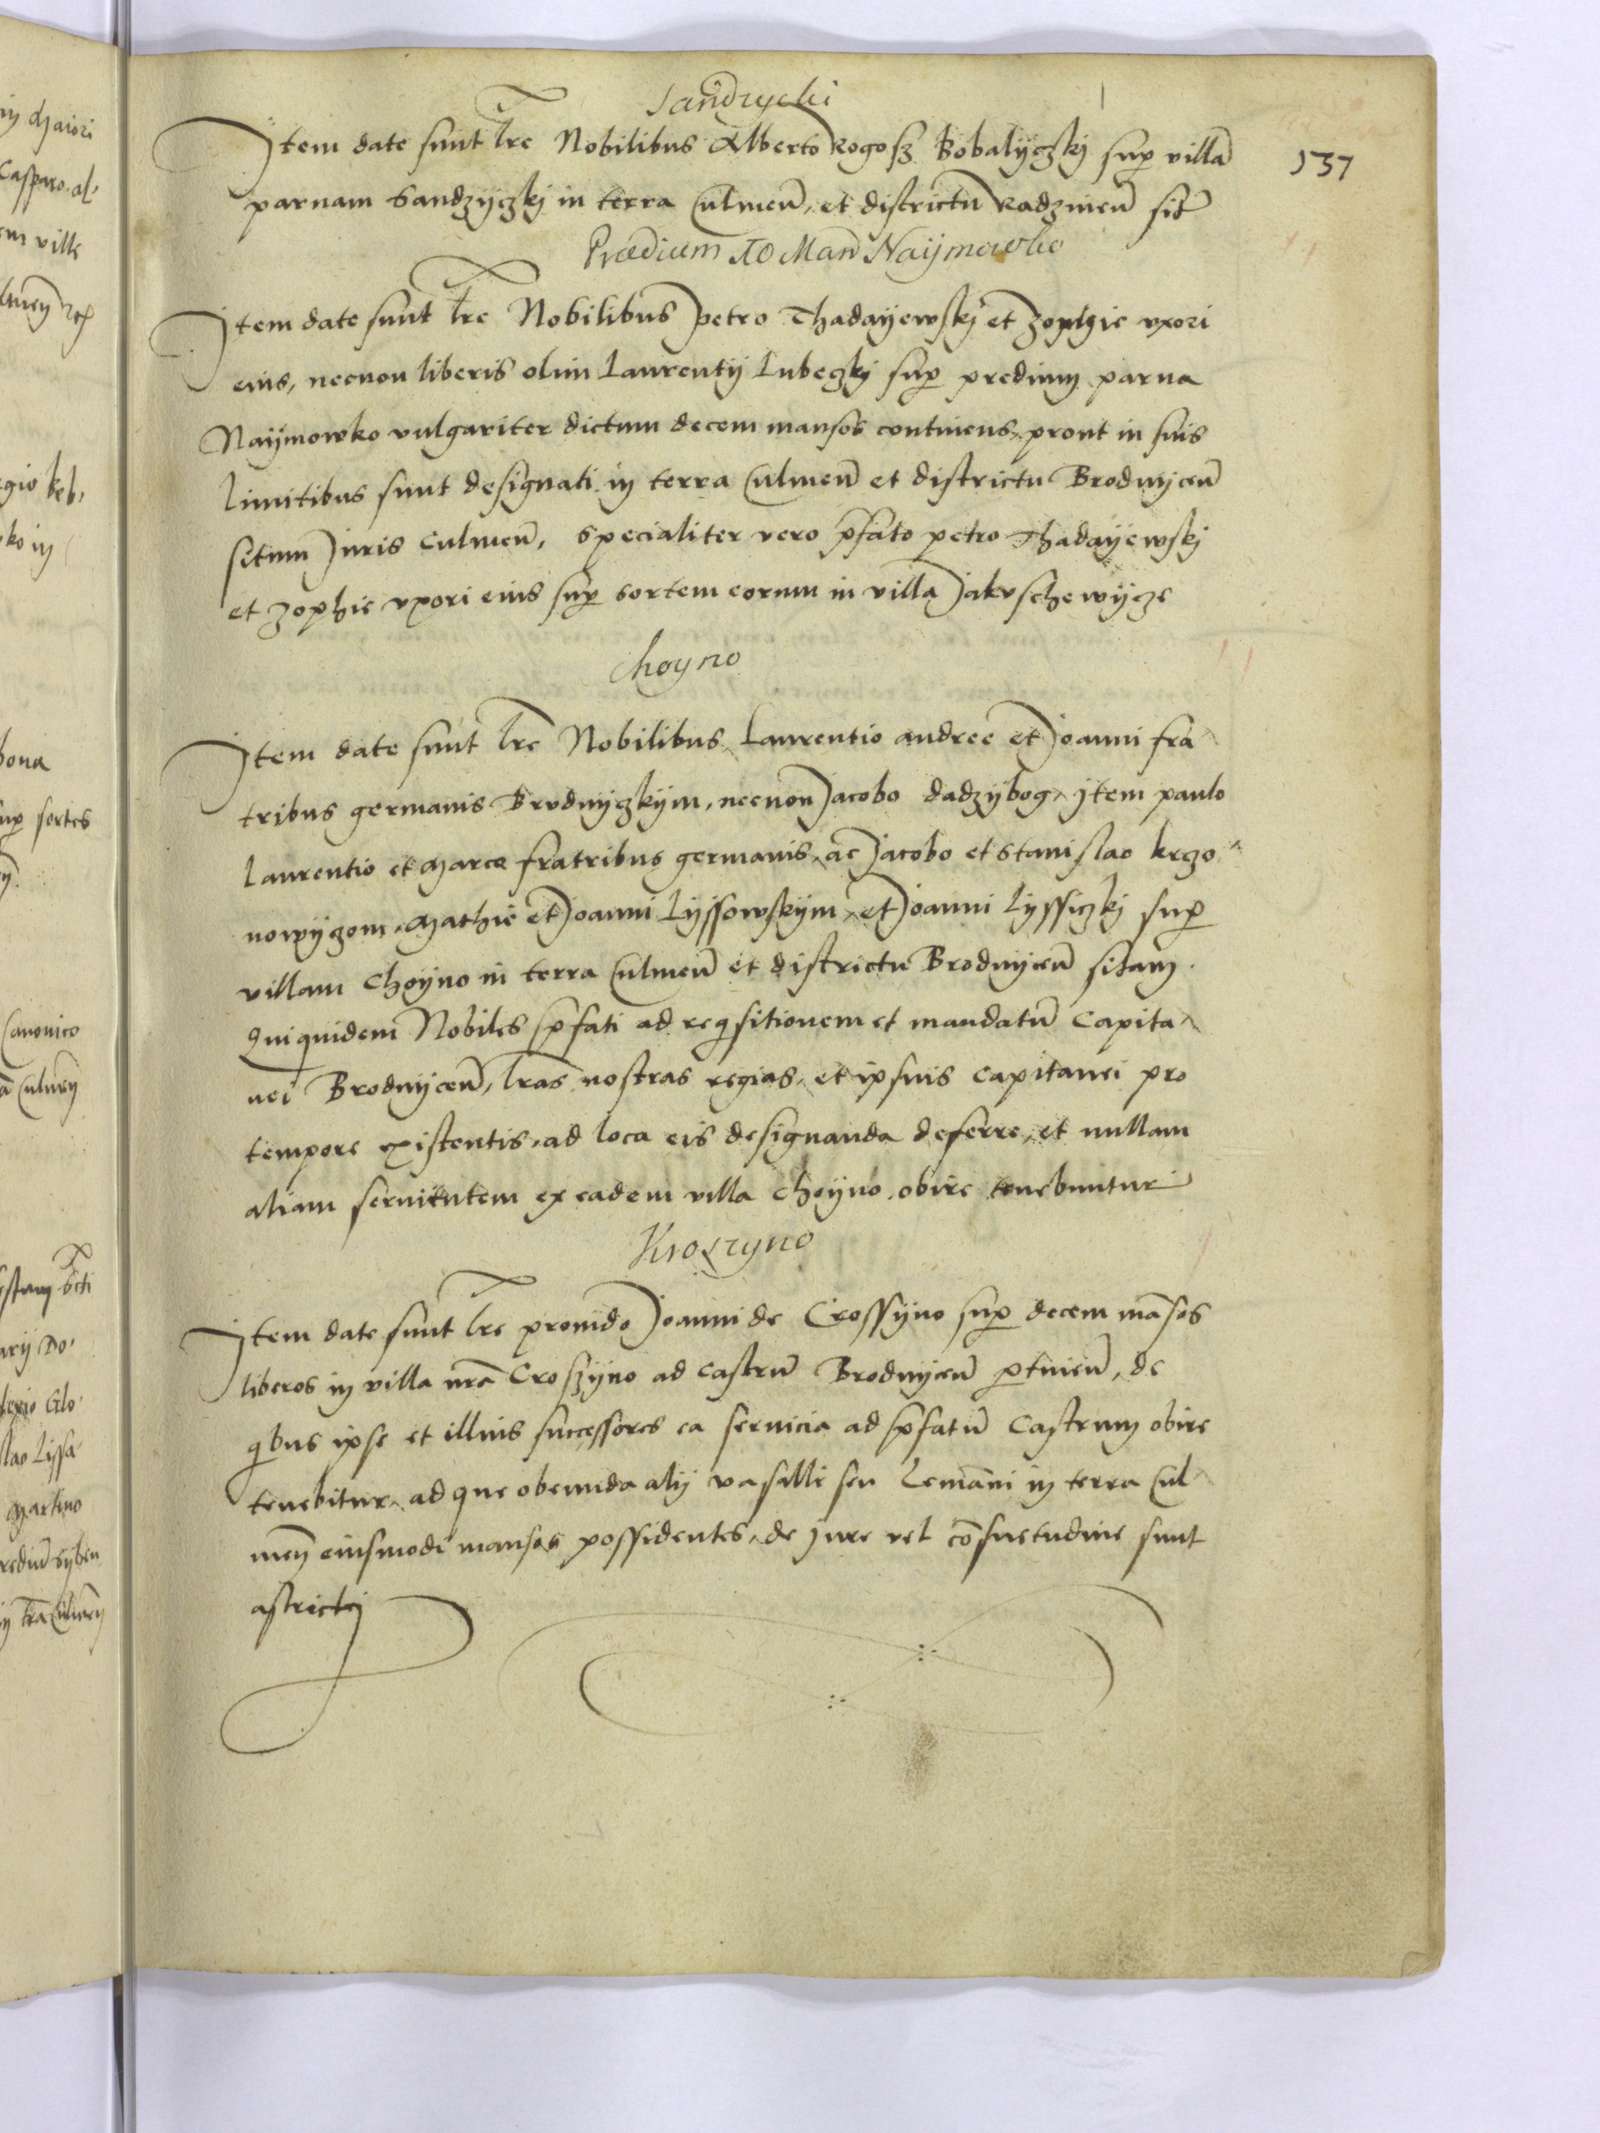 Sandzycki
Item date sunt lre Nobilibus Alberto Rogosz Bobalyczkj sup villa
parnam Sandzyczkj in terra Culmen, et districtu Radzinen sit
137
Prædium 10 Man Naymowko
Item date sunt lre Nobilibus petro Thadayewskj et Zophie vxori
eius, necnon liberis olim Laurentij Lubeczkj sup predium parua
Naymowko vulgariter dictum decem mansos continens, prout in suis
limitibus sunt designati in terra Culmen et districtu Brodnycen
situm Juris Culmen, specialiter vero pfato petro Thadayewskj
et Zophie vxori eius sup sortem eorum in villa Jakvschewycze
Choyno
Item date sunt lre Nobilibus, Laurentio andree et Joanni fra
tribus germanis Brvdnyczkym, necnon Jacobo dadzybog, Item paulo
Laurentio et Marco fratribus germanis, ac Jacobo et Stanislao krzo
nowyzom, Mathie et Joanni Lyssowskym, et Joanni Lyssiczkj sup
villam Choyno in terra Culmen et districtu Brodnycen sitam.
Quiquidem Nobiles pfati ad reqsitionem et mandatu Capita
nei Brodnycen, lras nostras regias, et ipsius capitanei pro
tempore existentis, ad loca eis designanda deferre, et nullam
aliam seruitutem ex eadem villa choyno, obire tenebuntur
Kroszyno
Item date sunt lre prouido Joanni de Crossyno sup decem masos
liberos in villa nra Croszyno ad castru Brodnycen ptinen, de
qbus ipse et illius successores ea seruicia ad pfatu Castrum obire
tenebitur, ad que obeunda alij vasalli seu Lemani in terra Cul
men eiusmodi mansos possidentes, de Jure vel cosuetudine sunt
astricti